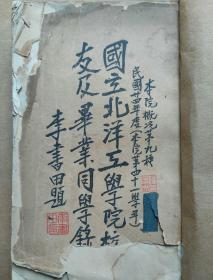 本院概況第九種
民國廿四年度(本院第四十一學年)
國立北洋工學院校
友及畢業同學錄
李書田題